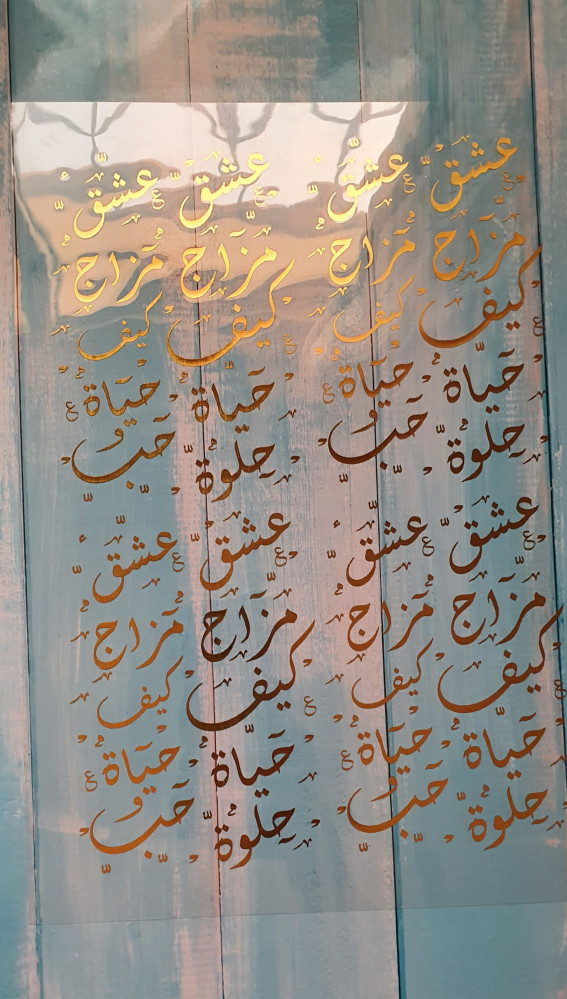 عشق عشق عشق عشق
مزاج مزاج مزاج مزاج
كيف كيف كيف كيف
حياة حياة حياة حياة
حلوة حب و حلوة حب و
عشق عشق عشق عشق
مزاج مزاج مزاج مزاج
كيف كيف كيف كيف
حياة حياة حياة حياة
حلوة حب و حلوة حب و